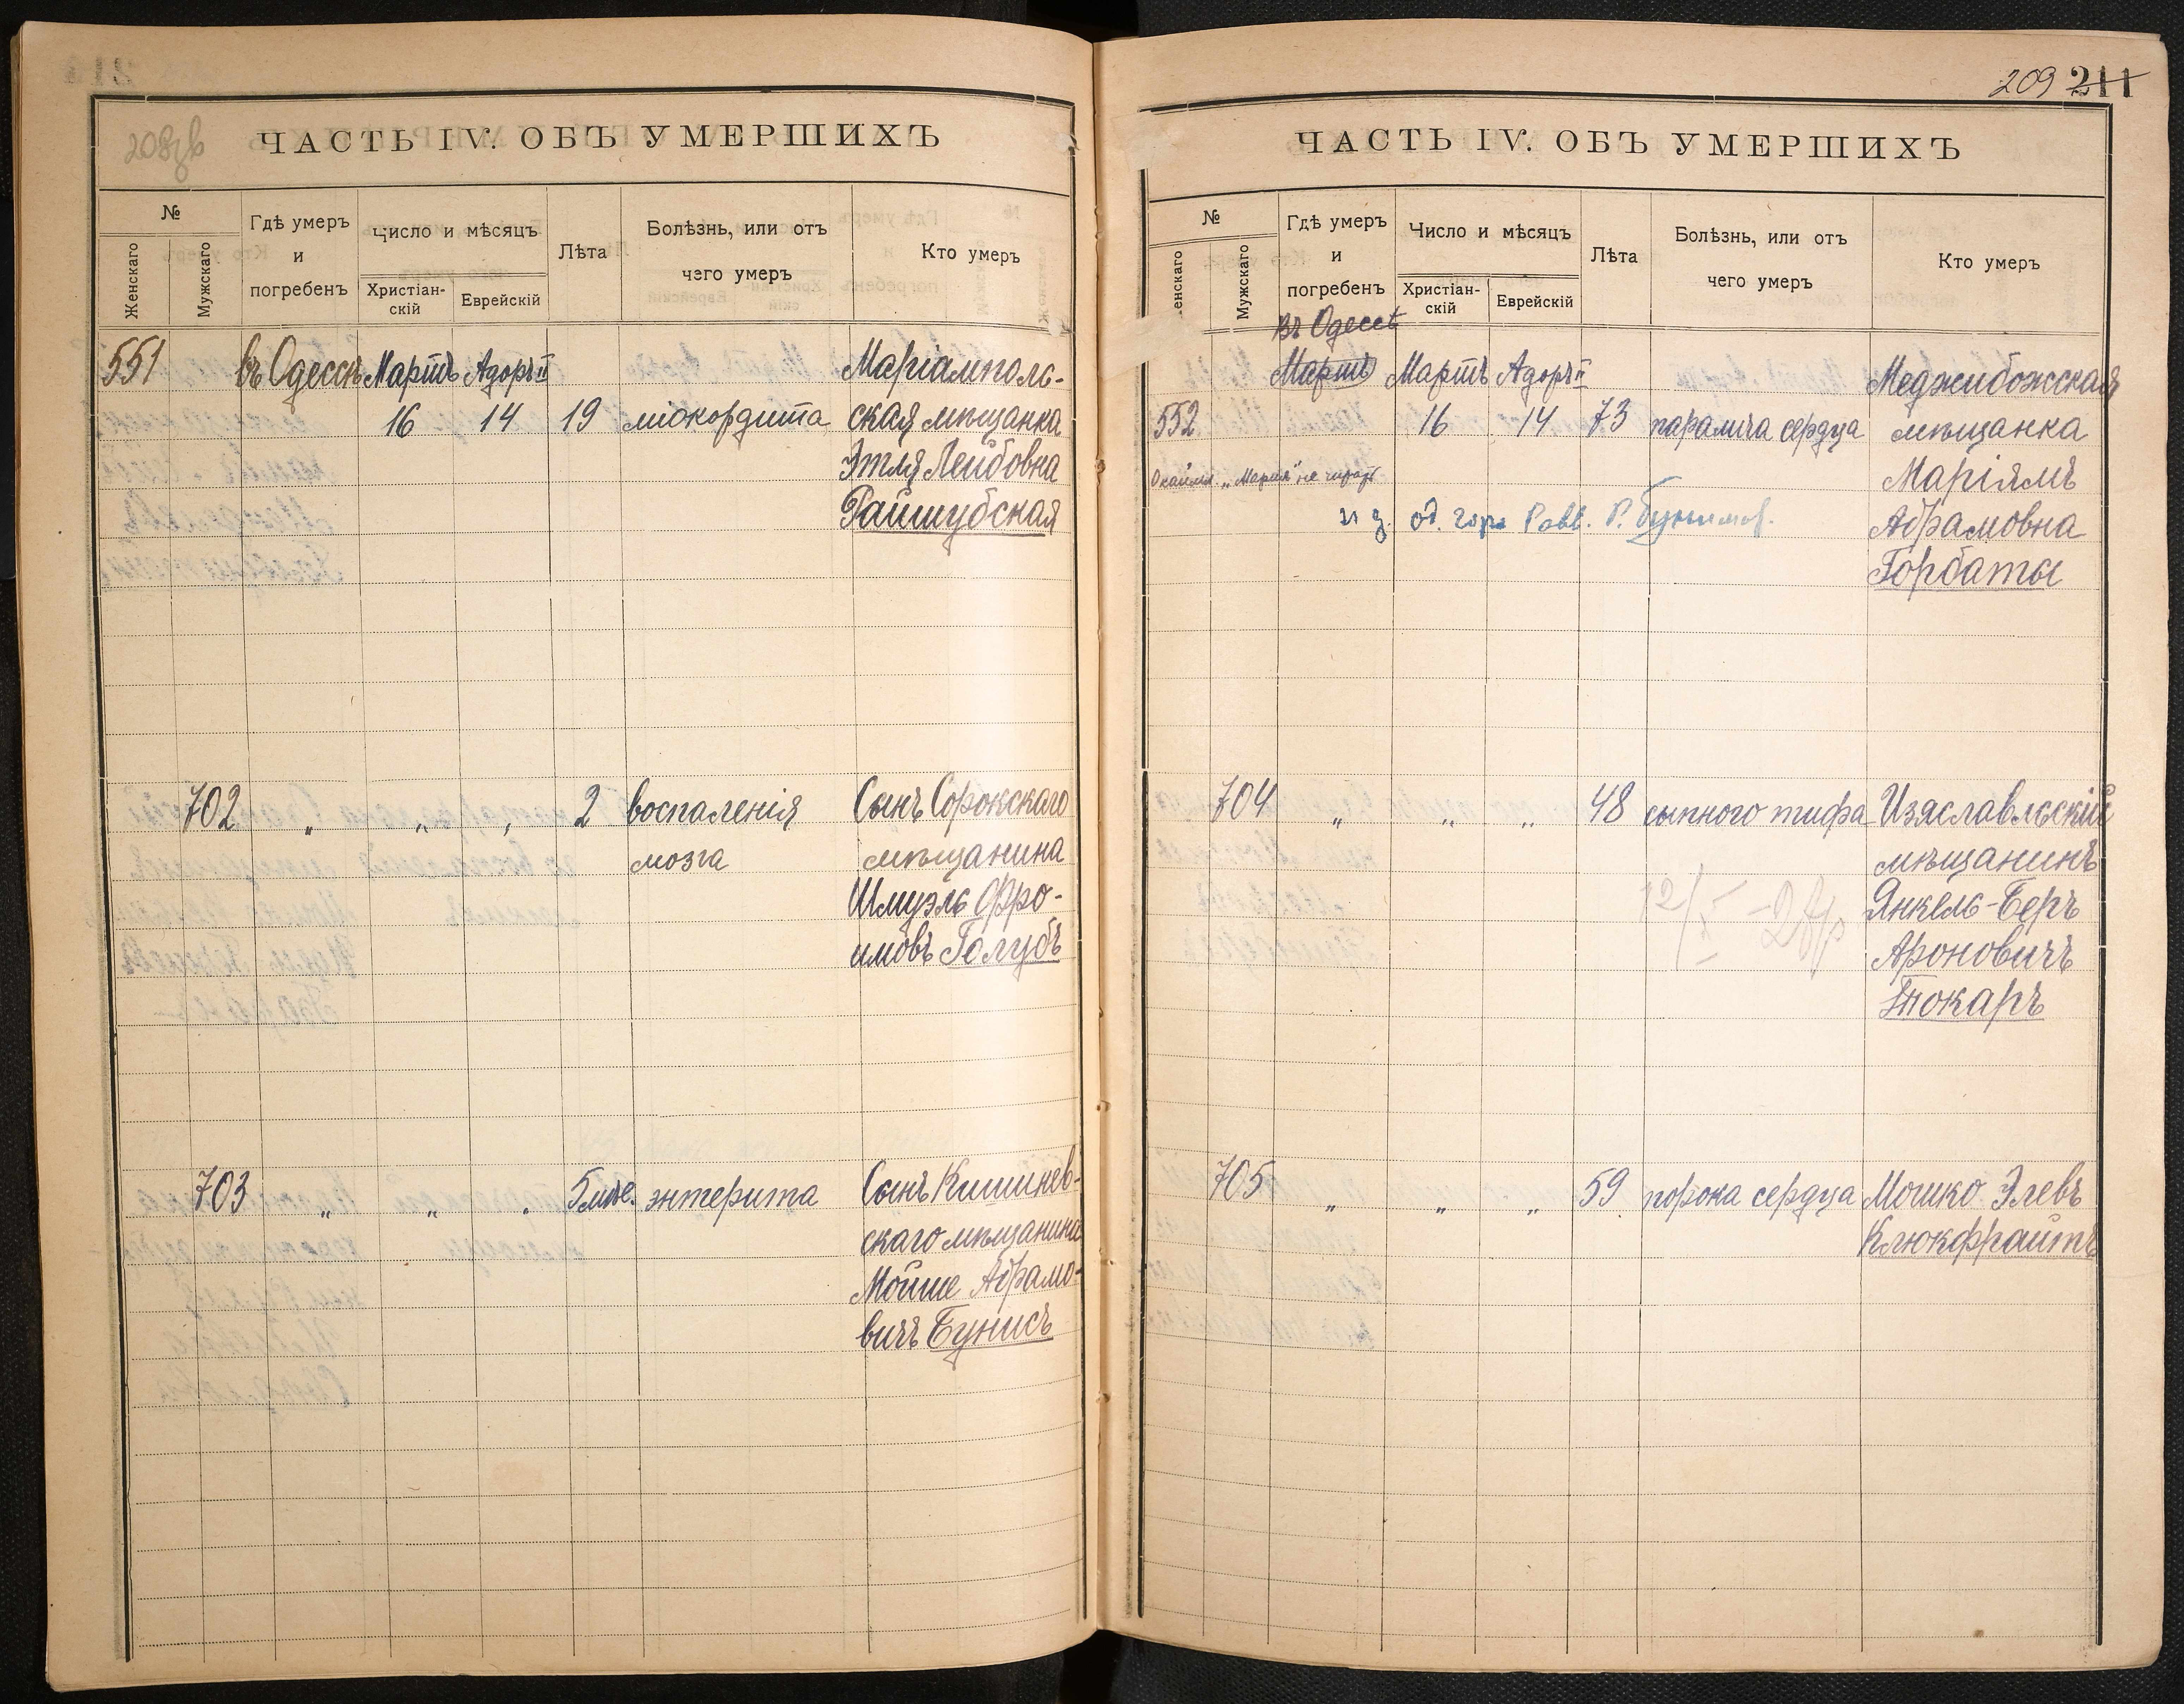 208 об
ЧАСТЬ IV. ОБЪ УМЕРШИХЪ
№
Женскаго
Мужскаго
Гдѣ умеръ
и
погребенъ
Число и мѣсяцъ
Христіан-
скій
Еврейскій
Лѣта
Болѣзнь, или отъ
чего умеръ
Кто умеръ
551 въ Одессѣ Мартъ Адоръ II Маріамполь-
16 14 19 міокордита ская мѣщанка
Этля Лейбовна
Райшубская
702 „ „ „ 2 воспаленія Сынъ Сорокскаго
мозга мѣщанина
Шмуэль Фро-
имовъ Голубъ
703 „ „ „ 5 мѣс. энтерита Сынъ Кишинев-
скаго мѣщанина
Мойше Абрамо-
вичъ Бунисъ
209 211
ЧАСТЬ IV. ОБЪ УМЕРШИХЪ
№
енскаго
Мужскаго
Гдѣ умеръ
и
погребенъ
Число и мѣсяцъ
Христіан-
скій
Еврейскій
Лѣта
Болѣзнь, или отъ
чего умеръ
Кто умеръ
Въ Одессѣ
Мартъ Мартъ Адоръ II Меджибожская
552 16 14 73 паралича сердца мѣщанка
„Мартъ" не читать Маріямъ
и д. од. гор. Равв. Абрамовна
Горбаты
704 „ „ „ 48 сыпного тифа Изяславльскій
мѣщанинъ
Янкель-Беръ
Ароновичъ
Токаръ
705 „ „ „ 59 порока сердца Мошко Элевъ
Клюкфрайтъ